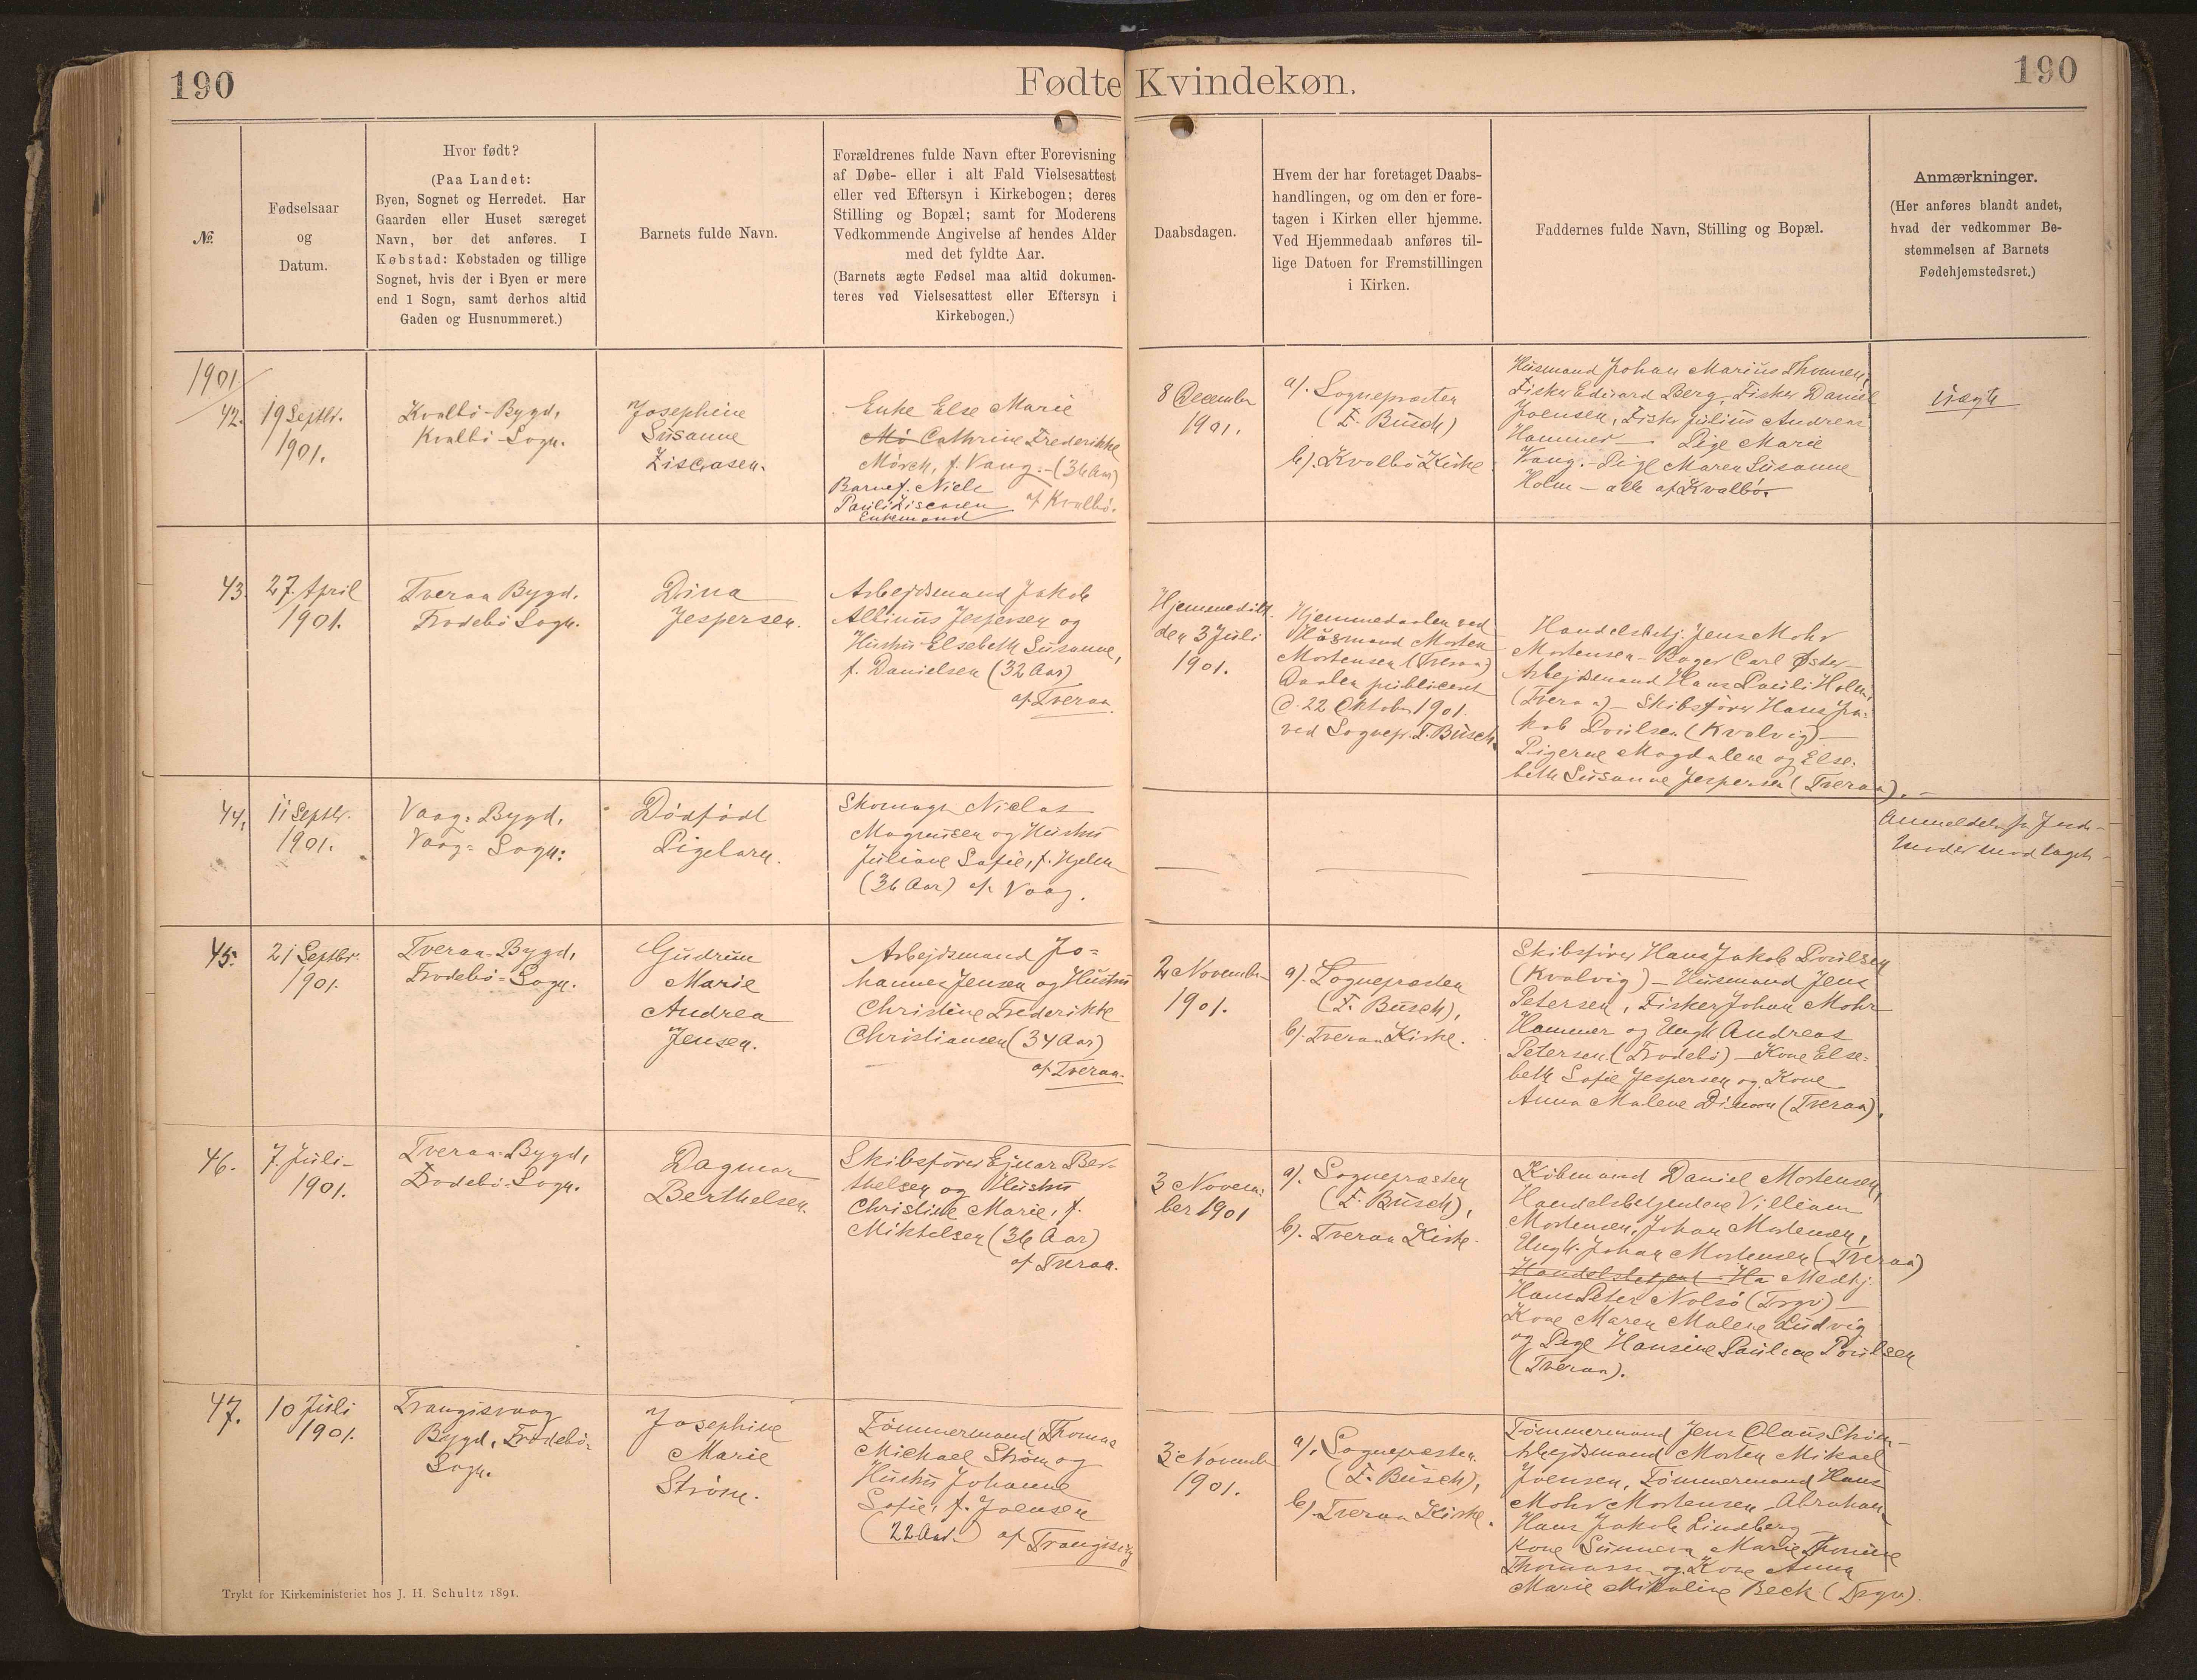 190
Fødte Kvindekøn.
190
№.
Fødselsaar
og
Datum.
Hvor født?
(Paa Landet:
Byen, Sognet og Herredet. Har
Gaarden eller Huset særeget
Navn, bør det anføres. I
Købstad: Købstaden og tillige
Sognet, hvis der i Byen er mere
end 1 Sogn, samt derhos altid
Gaden og Husnummeret.)
Barnets fulde Navn.
Forældrenes fulde Navn efter Forevisning
af Døbe- eller i alt Fald Vielsesattest
eller ved Eftersyn i Kirkebogen; deres
Stilling og Bopæl; samt for Moderens
Vedkommende Angivelse af hendes Alder
med det fyldte Aar.
(Barnets ægte Fødsel maa altid dokumen-
teres ved Vielsesattest eller Eftersyn i
Kirkebogen.)
Daabsdagen.
Hvem der har foretaget Daabs-
handlingen, og om den er fore-
tagen i Kirken eller hjemme.
Ved Hjemmedaab anføres til-
lige Datoen for Fremstillingen
i Kirken.
Faddernes fulde Navn, Stilling og Bopæl.
Anmærkninger.
(Her anføres blandt andet,
hvad der vedkommer Be-
stemmelsen af Barnets
Fødehjemstedsret.)
1901
42.
19 Septbr.
1901.
Kvalbö-Bygd,
Kvalbö-Sogn.
Josephine
Susanne
Enke Else Marie
Mö Cathrine Frederikke
Mörch, f. Vang.-(36 Aar)
Barnef. Niels
Pauli
af Kvalbö.
Enkemand
8 December
1901.
a). Sognepræsten
(F. Busch)
b). Kvalbö Kirke
Husmand Johan Marius Thomsen,
Fisker Edvard Berg, Fisker Daniel
Joensen, Fisker Julius Andreas
Hammer — Pige Marie
Vang.- Pige Maren Susanne
Holm — alle af Kvalbö.
Uægte
43.
27. April
1901.
Tveraa Bygd.
Frodebö Sogn.
Dina
Jespersen.
Arbejdsmand Jakob
Albinus Jespersen og
Hustru Elsebeth Susanne,
f. Danielsen (32 Aar)
af Tveraa.
Hjemmedöbt
den 3 Juli
1901.
Hjemmedaaben ved
Husmand Morten
Mortensen (Tveraa)
Daaben publiceret
d. 22 Oktober 1901.
ved Sognepr. F. Busch
Handelsbetj. Jens Mohr
Mortensen - Bager Carl Øster-
Arbejdsmand Hans Pauli Holm,
(Tveraa) - Skibsförer Hans Ja-
kob Poulsen (Kvalvig) —
Pigerne Magdalene og Else-
beth Susanne Jespersen (Tveraa). —
44.
11 Septbr.
1901.
Vaag-Bygd,
Vaag-Sogn.
Dödfödt
Pigebarn.
Skomager Niclas
Magnussen og Hustru
Juliane Sofie, f. Hjelm
(36 Aar) af Vaag.
Anmeldelse fr Jorde-
moder modtaget.
45.
21 Septbr.
1901.
Tveraa-Bygd,
Frodebö-Sogn.
Gudrun
Marie
Andrea
Jensen.
Arbejdsmand Jo-
hannes Jensen og Hustru
Christine Frederikke
Christiansen (34 Aar)
af Tveraa.
2 November
1901.
a). Sognepræsten
(F. Busch),
b). Tveraa Kirke.
Skibsförer Hans Jakob Poulsen
(Kvalvig) - Husmand Jens
Petersen, Fisker Johan Mohr
Hammer og Ungk. Andreas
Petersen (Frodebö) - Kone Else-
beth Sofie Jespersen og Kone
Anna Malene Dimon (Tveraa).
46.
7. Juli
1901.
Tveraa-Bygd,
Frodebö-Sogn.
Dagmar
Berthelsen.
Skibsförer Ejnar Ber-
thelsen og Hustru
Christine Marie, f.
Mikkelsen (36 Aar)
af Tveraa.
3 Novem-
ber 1901
a). Sognepræsten
(F. Busch),
b). Tveraa Kirke.
Köbmand Daniel Mortensen,
Handelsbetjentene Villiam
Mortensen, Johan Mortensen,
Ungk. Johan Mortensen (Tveraa)
Handelsbetjent Ha Medhj.
Hans Peter Nolsö (Trgv) —
Kone Maren Malene Ludvig
og Pige Hansine Pauline Poulsen
(Tveraa).
47.
10 Juli
1901.
Trangisvaag
Bygd, Frodebö-
Sogn.
Josephine
Marie
Ström.
Tömmermand Thomas
Michael Ström og
Hustru Johanne
Sofie, f. Joensen
(22 Aar.) af Trangisvg
3 November
1901.
a). Sognepræsten
(F. Busch),
b). Tveraa Kirke.
Tömmermand Jens Olaus Ström -
Arbejdsmand Morten Mikael
Joensen, Tömmermand Hans
Mohr Mortensen - Abraham
Hans Jakob Lindberg
Kone Sunneva Marie Thomine
Thomassen og Kone Anna
Marie Mikkeline Beck (Trgv).
Trykt for Kirkeministeriet hos J. H. Schultz 1891.